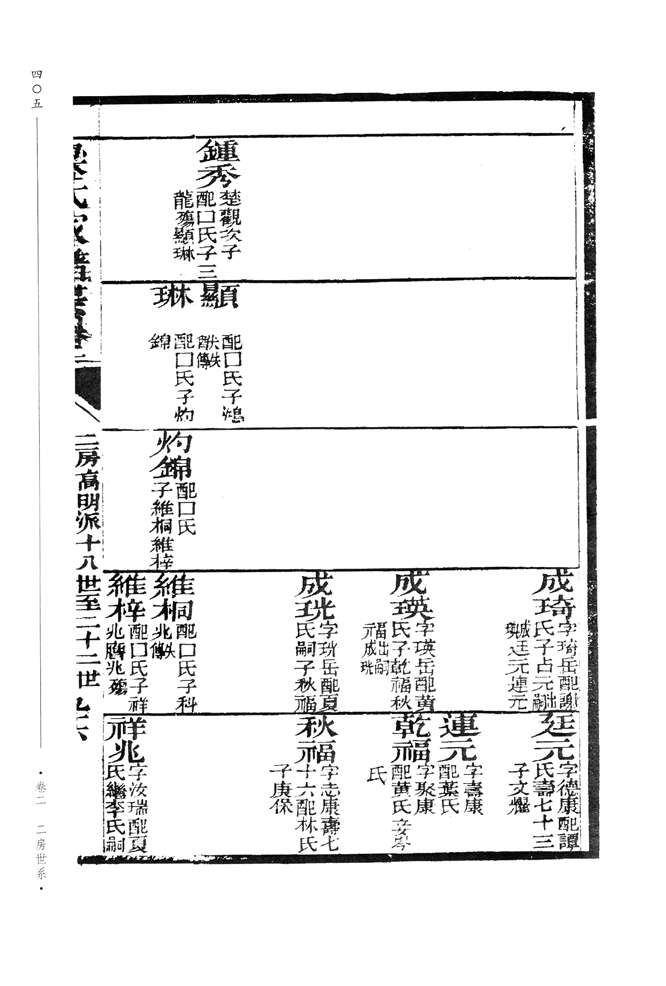 四〇五
卷二 二房世系
鍾秀
楚觀次子
配口氏子三
龍殤顯琳
顯
配口氏子鴻
失傳
琳
配口氏子灼
錦
灼錦
配口氏
子維桐維梓
成琦
字琦岳配謝
氏子占元出嗣
成瑛廷元連元
成瑛
字瑛岳配黃
氏子乾福秋
福出嗣成珖
成珖
字珖岳配夏
氏嗣子秋福
維桐
配口氏子科
兆失傳
維梓
配口氏子祥
兆殤
廷元
字德康配譚
氏壽七十三
子文耀
連元
字壽康
配葉氏
乾福
字聚康
配黃氏妾岑
氏
秋福
字志康壽七
十六配林氏
子庚保
祥兆
字汝瑞配夏
氏繼李氏嗣
氏家譜
二房高明派十八世至二十二世